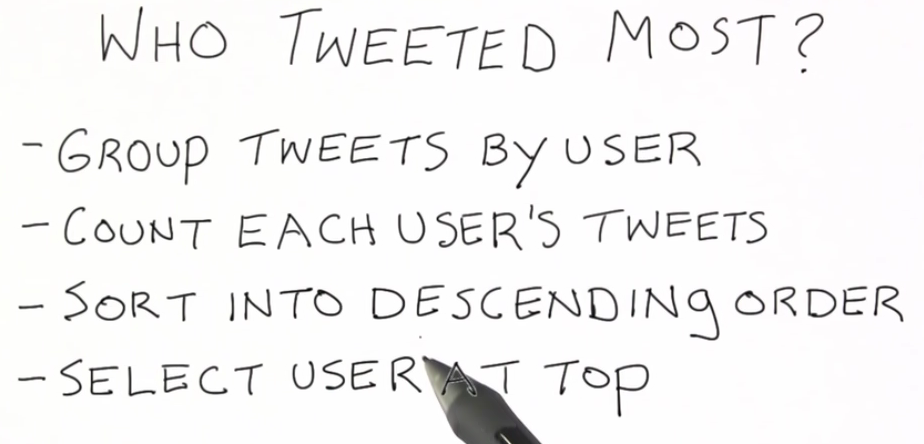 WHO TWEETED MOST?
- GROUP TWEETS BY USER
- COUNT EACH USER'S TWEETS
- SORT INTO DESCENDING ORDER
- SELECT USER AT TOP